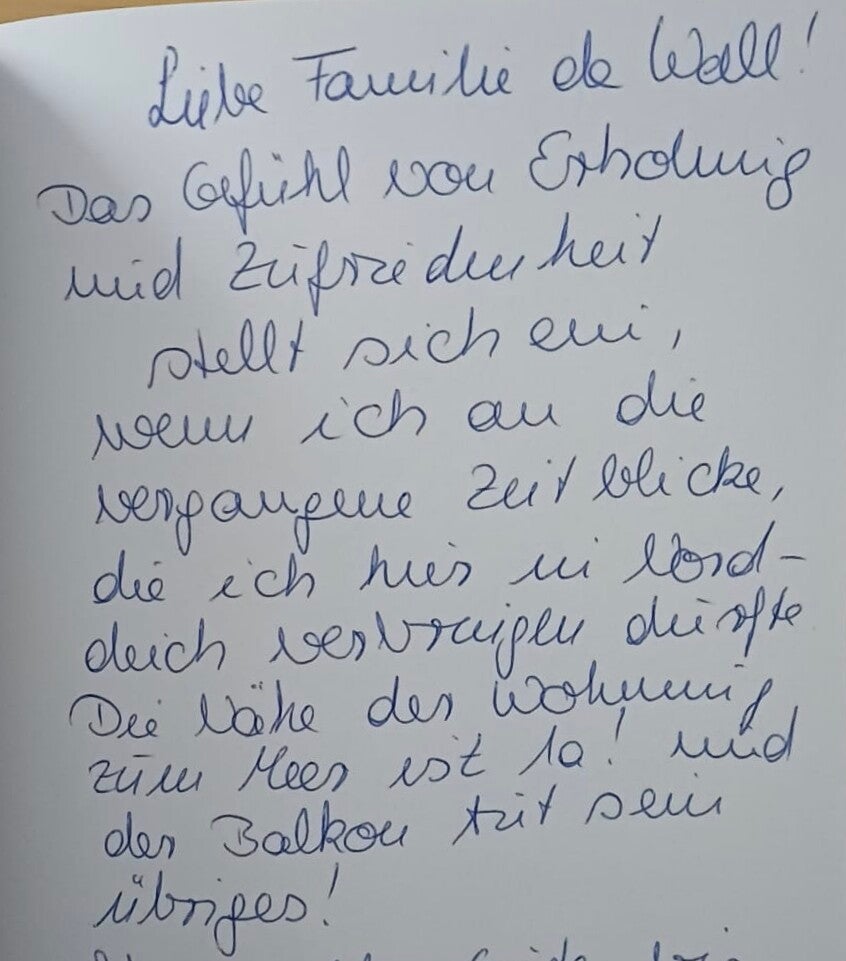 Liebe Familie de Wall!
Das Gefühl von Erholung
und Zufriedenheit
stellt sich ein,
wenn ich an die
vergangene Zeit blicke,
die ich hier in Nord-
deich verbringen durfte
Die Nähe der Wohnung
zum Meer ist 1a! und
der Balkon tut sein
übriges!